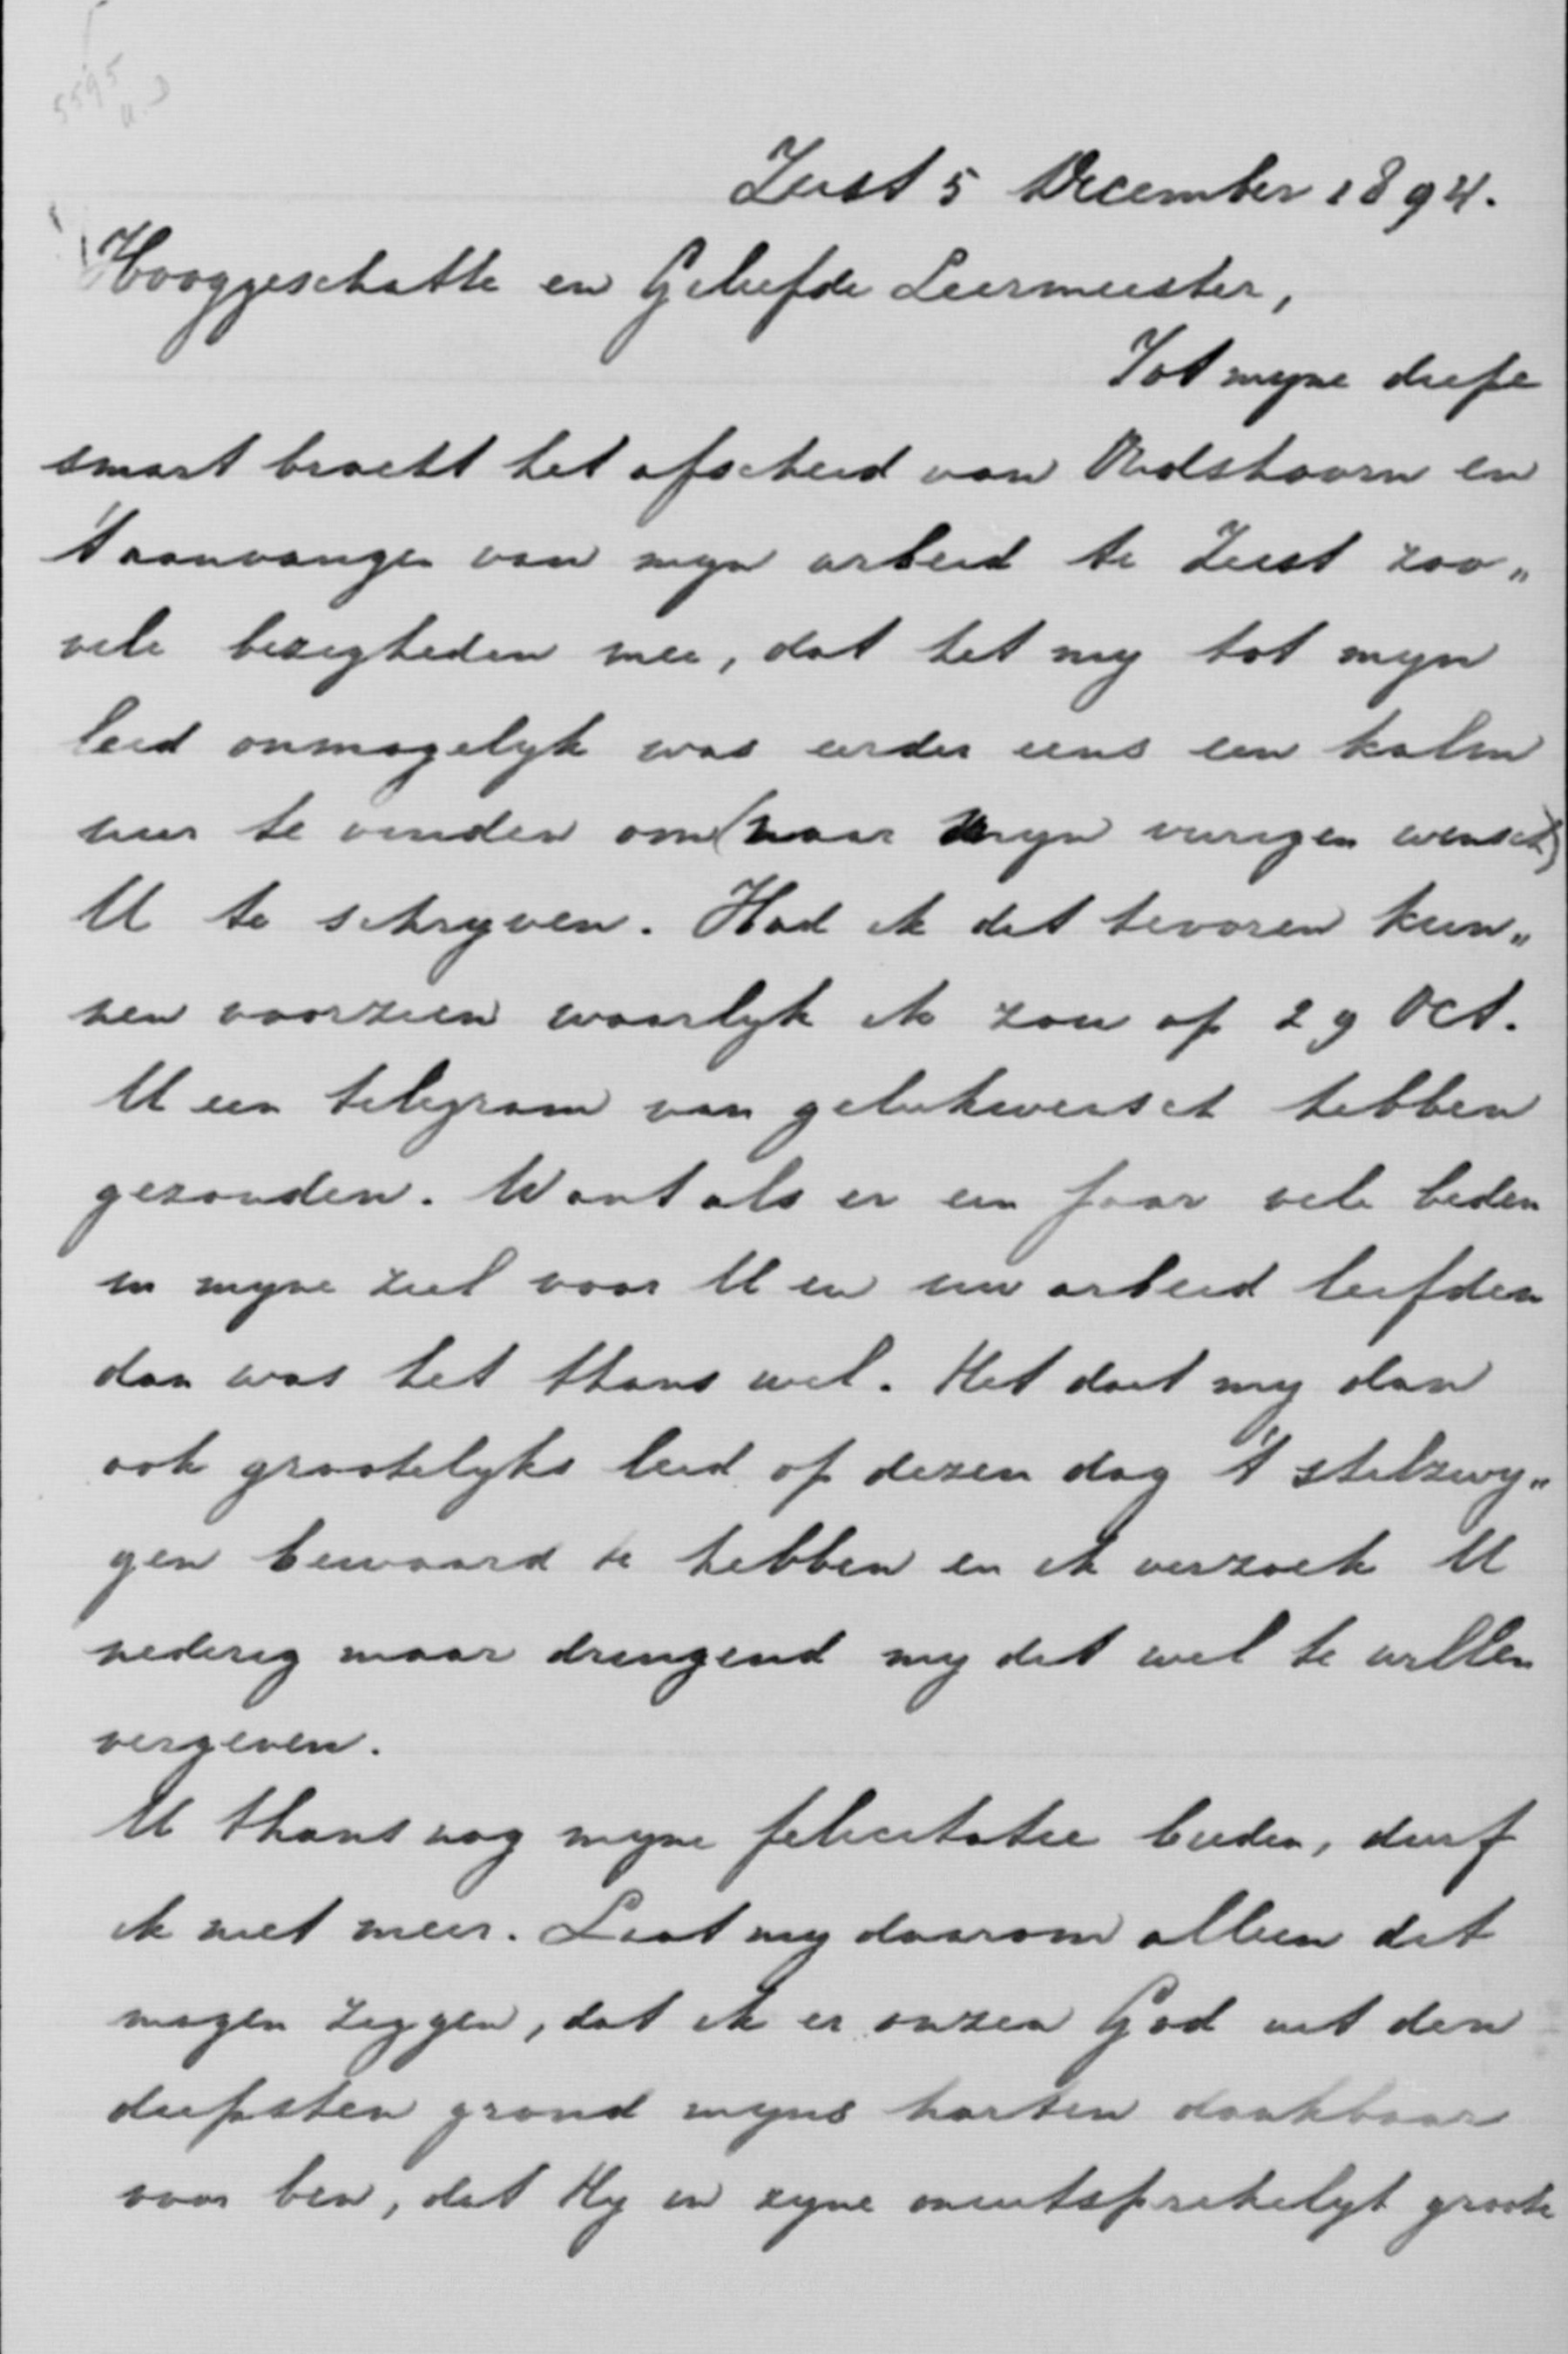 5595
Zeist 5 December 1894.
Hooggeschatte en Geliefde Leermeester,
Tot myne diepe
smart bracht het afscheid van Oudshoorn en
't aanvangen van myn arbeid te Zeist zoo„
vele bezigheden mee, dat het my tot myn
leed onmogelyk was eerder eens een kalm
uur te vinden om (naar myn vurigen wensch)
U te schryven. Had ik dit tevoren kun„
nen voorzien waarlyk ik zou op 29 Oct.
U een telegram van gelukwensch hebben
gezonden. Want als er een jaar vele beden
in myne ziel voor U en uw arbeid leefden
dan was het thans wel. Het doet my dan
ook grootelyks leed op dezen dag 't stilzwy„
gen bewaard te hebben en ik verzoek U
nederig maar dringend my dit wel te willen
vergeven.
U thans nog myne felicitatie bieden, durf
ik niet meer. Laat my daarom alleen dit
mogen zeggen, dat ik er onzen God uit den
diepsten grond myns harten dankbaar
voor ben, dat Hy in zyne onuitsprekelyk groote